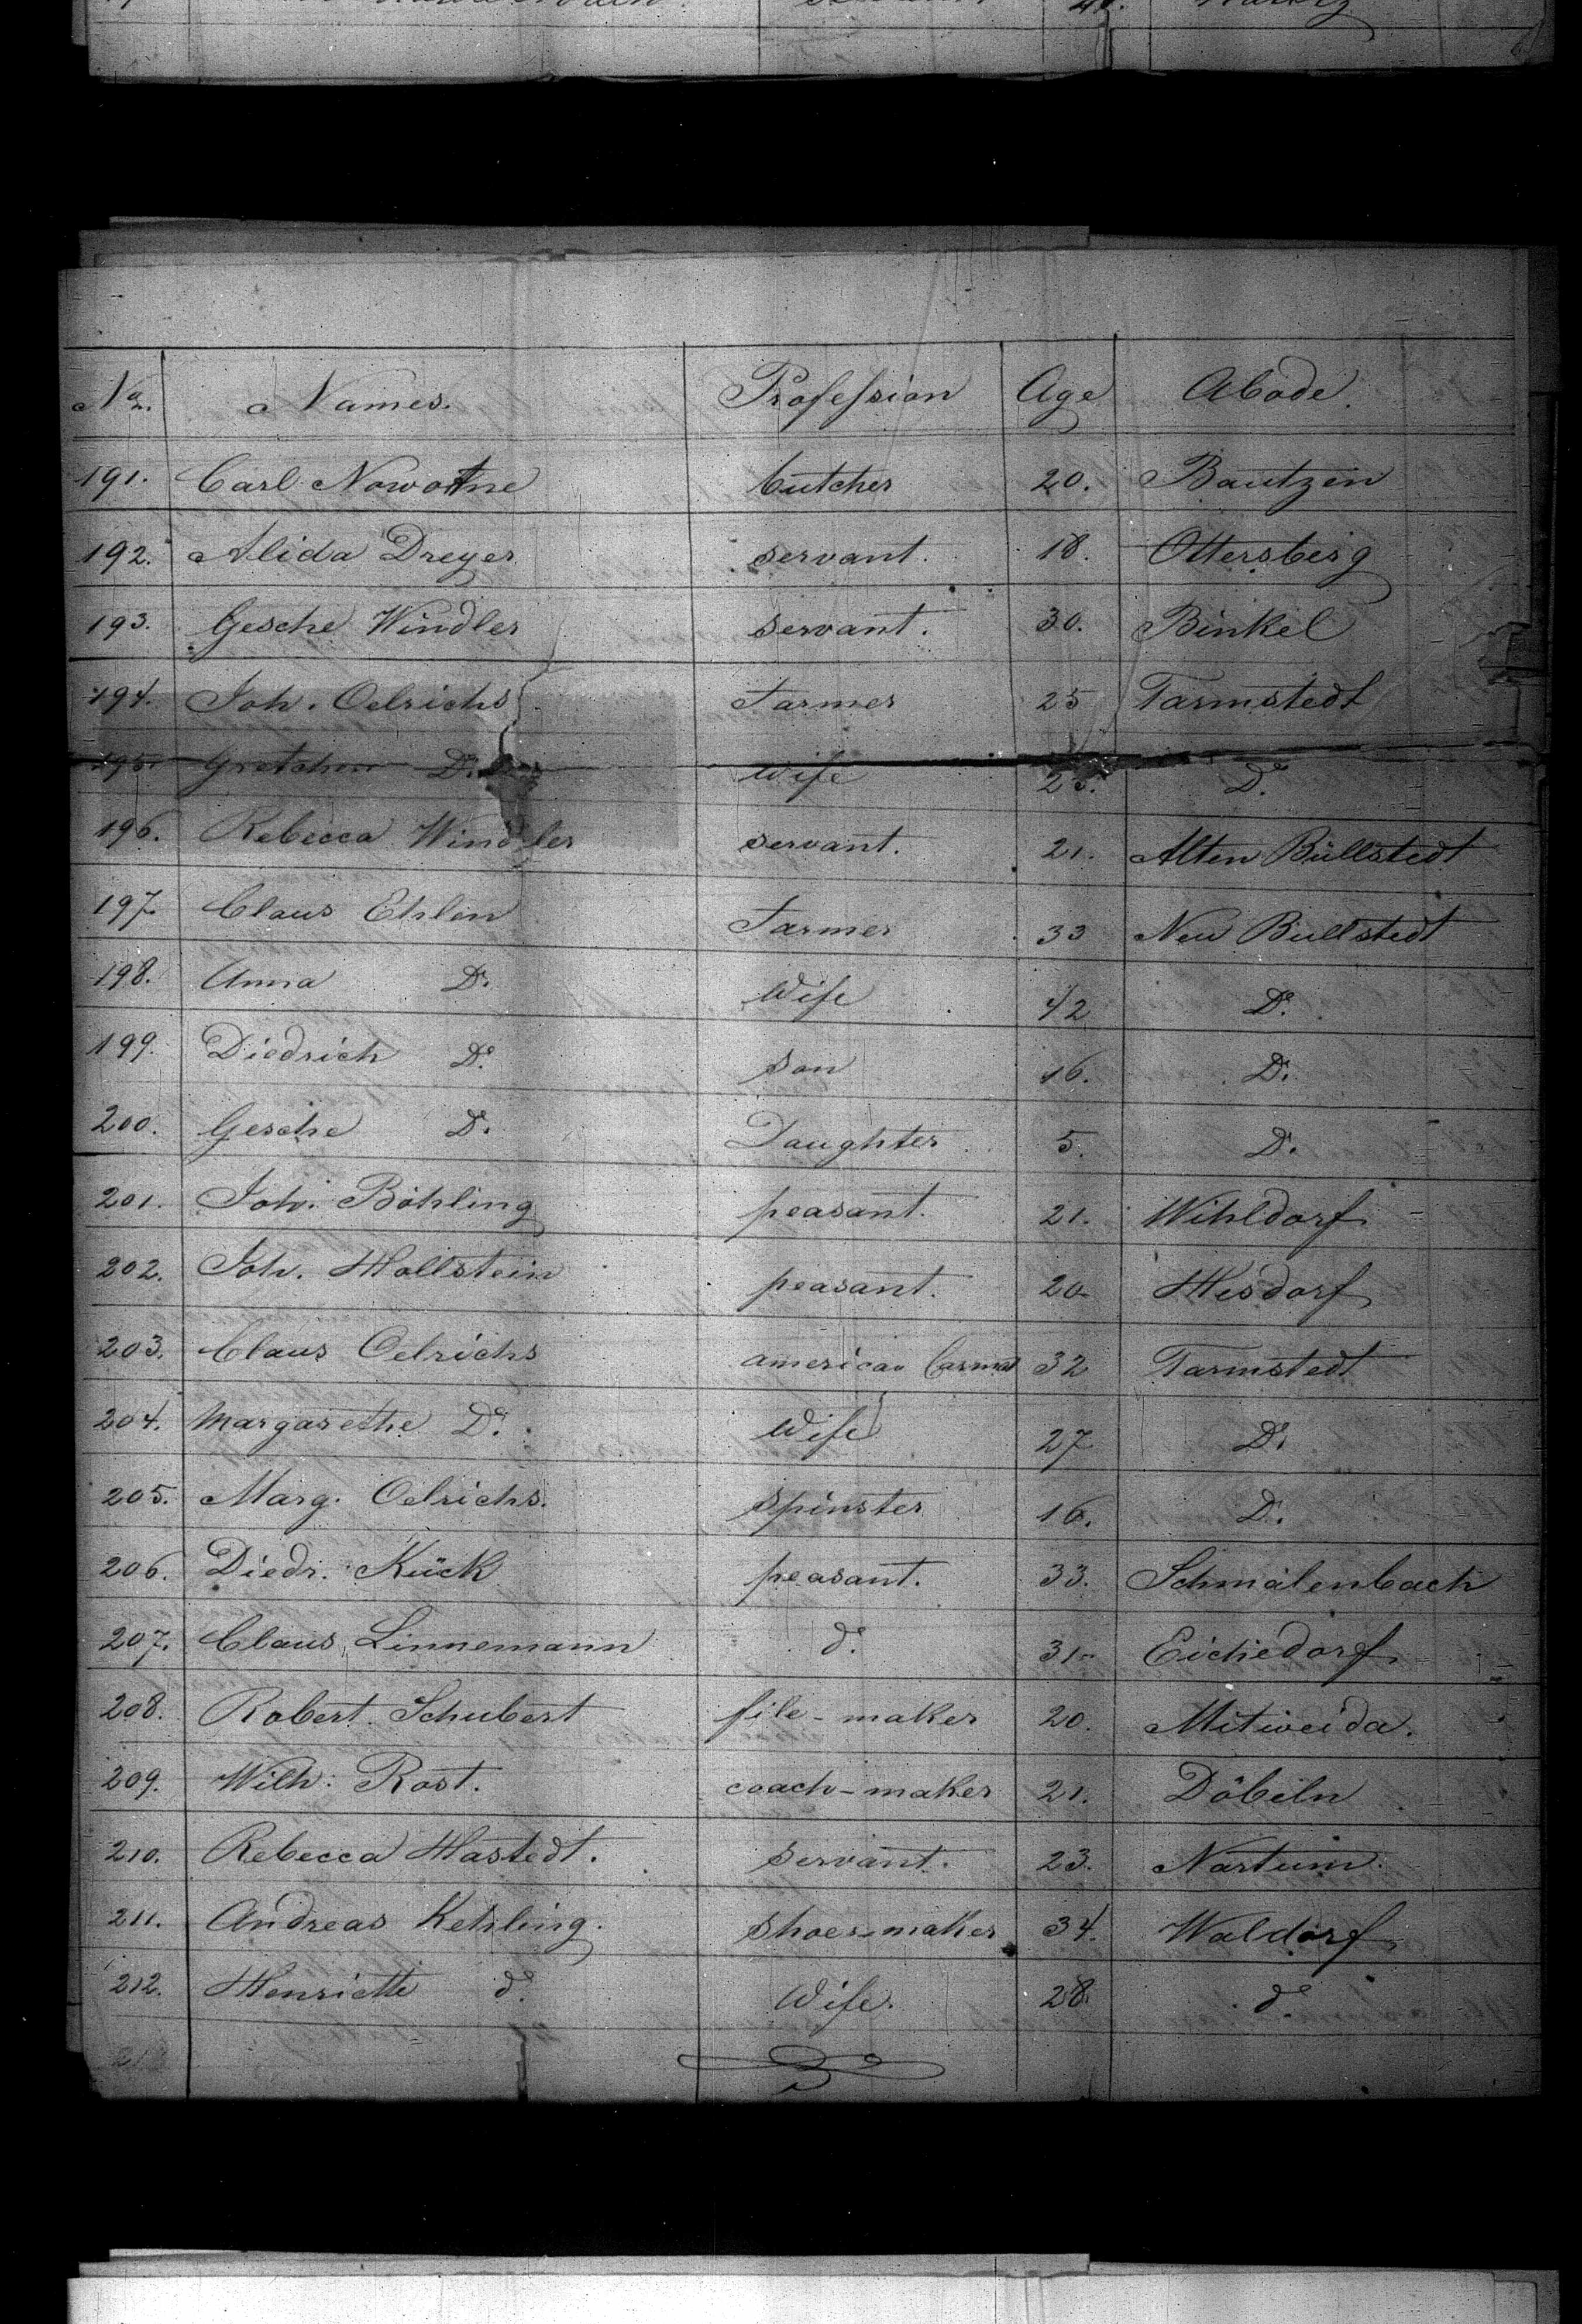 No. Names. Profession Age Abode.
191. Carl Nowottne butcher 20. Bautzen
192. Alida Dreyer servant. 18. Ottersberg
193. Gesche Windler servant. 30. Binkel
194. Joh. Oelrichs Farmer 25 Tarmstedt
195. Gretchen Do. wife 25. Do.
196. Rebecca Windler servant. 21. Alten Büllstedt
197 Claus Ehlen Farmer 33 Neu Bullstedt
198. Anna Do. Wife 42 Do.
199. Diedrich Do. son 16. Do.
200. Gesche Do. Daughter 5. Do.
201. Joh. Böhling peasant. 21. Wihldorf
202. Joh. Hollstein peasant. 20 Hesdorf
203. Claus Oelrichs american 32 Tarmstedt
204. Margarethe Do. Wife 27 Do.
205. Marg. Oelrichs. spinster 16. Do.
206. Diedr. Kück peasant. 33. Schmalenbach
207. Claus Linnemann do. 31 Eichedorf
208. Robert Schubert file-maker 20. Mitweida.
209. Wilh: Rost. coach-maker 21. Döbeln
210. Rebecca Hastedt. servant. 23. Nartum
211. Andreas Kehling. shoe-maker 34. Waldorf
212. Henriette do. Wife. 28. do.